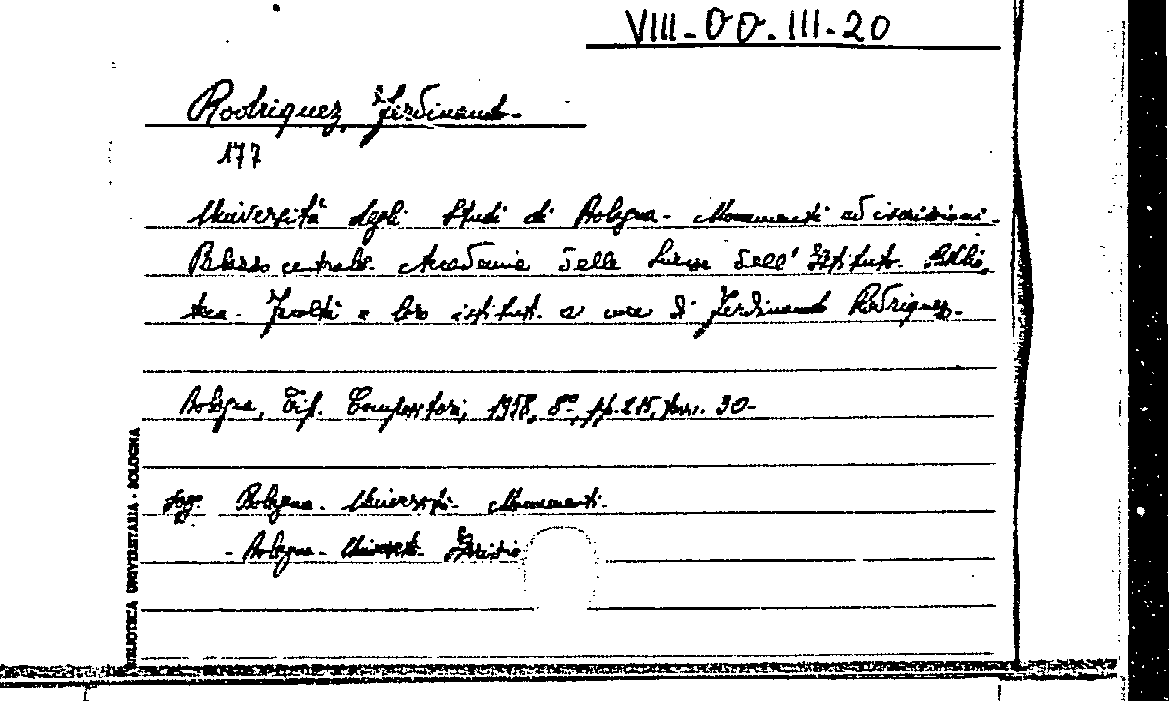 VIII-OO.III-20
Rodriguez, Ferdinando-
177
Università degli Studi di Bologna- Monumenti ed iscrizioni-
Palazzo centrale- Accademia delle Scienze dell'Istituto- Biblio
teca- Facoltà e loro istituti- a cura di Ferdinando Rodriguez-
Bologna, Tip. Compositori, 1958, 8°, pp.215, tavv. 30-
Sogg. Bologna- Università- Monumenti-
- Bologna- Università- Iscrizio
BIBLIOTECA UNIVERSITARIA - BOLOGNA